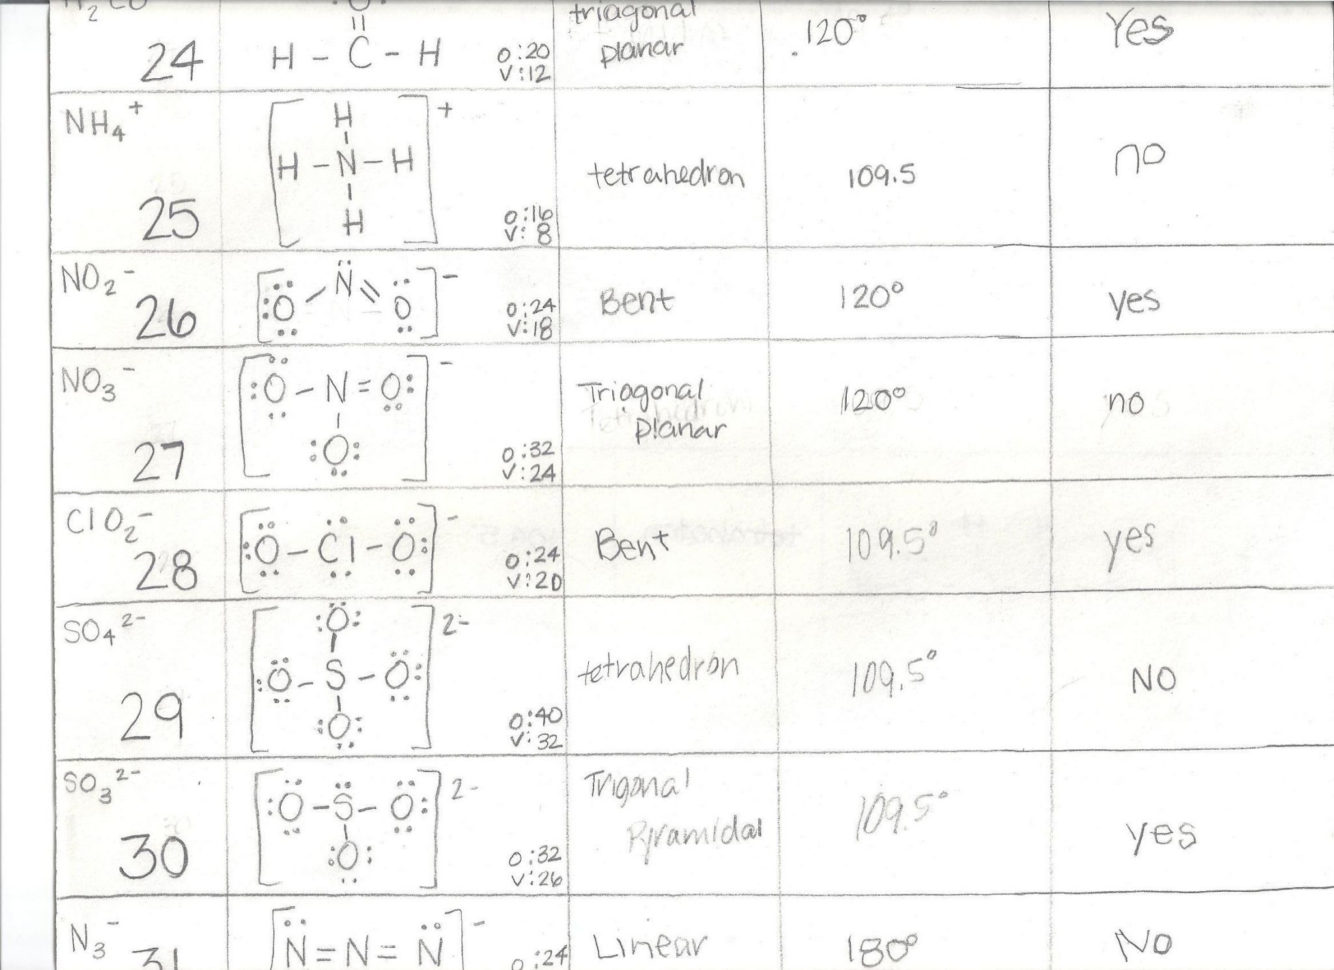 H2CO
24
O
H - C - H
O:20
V:12
triagonal
planar
.120°
Yes
NH4+
25
H
H - N - H
H
+
O:16
V: 8
tetrahedron
109.5
no
NO2-
26
O N O
-
O:24
V:18
Bent
120°
yes
NO3-
27
O - N = O
O
-
O:32
V:24
Triogonal
planar
120°
no
ClO2-
28
O - Cl - O
-
O:24
V:20
Bent
109.5°
yes
SO4 2-
29
O
O - S - O
O
2-
O:40
V:32
tetrahedron
109.5°
NO
SO3 2-
30
O - S - O
O
2-
O:32
V:26
Trigonal
Pyramidal
109.5°
yes
N3-
31
N = N = N
-
O:24
Linear
180°
No